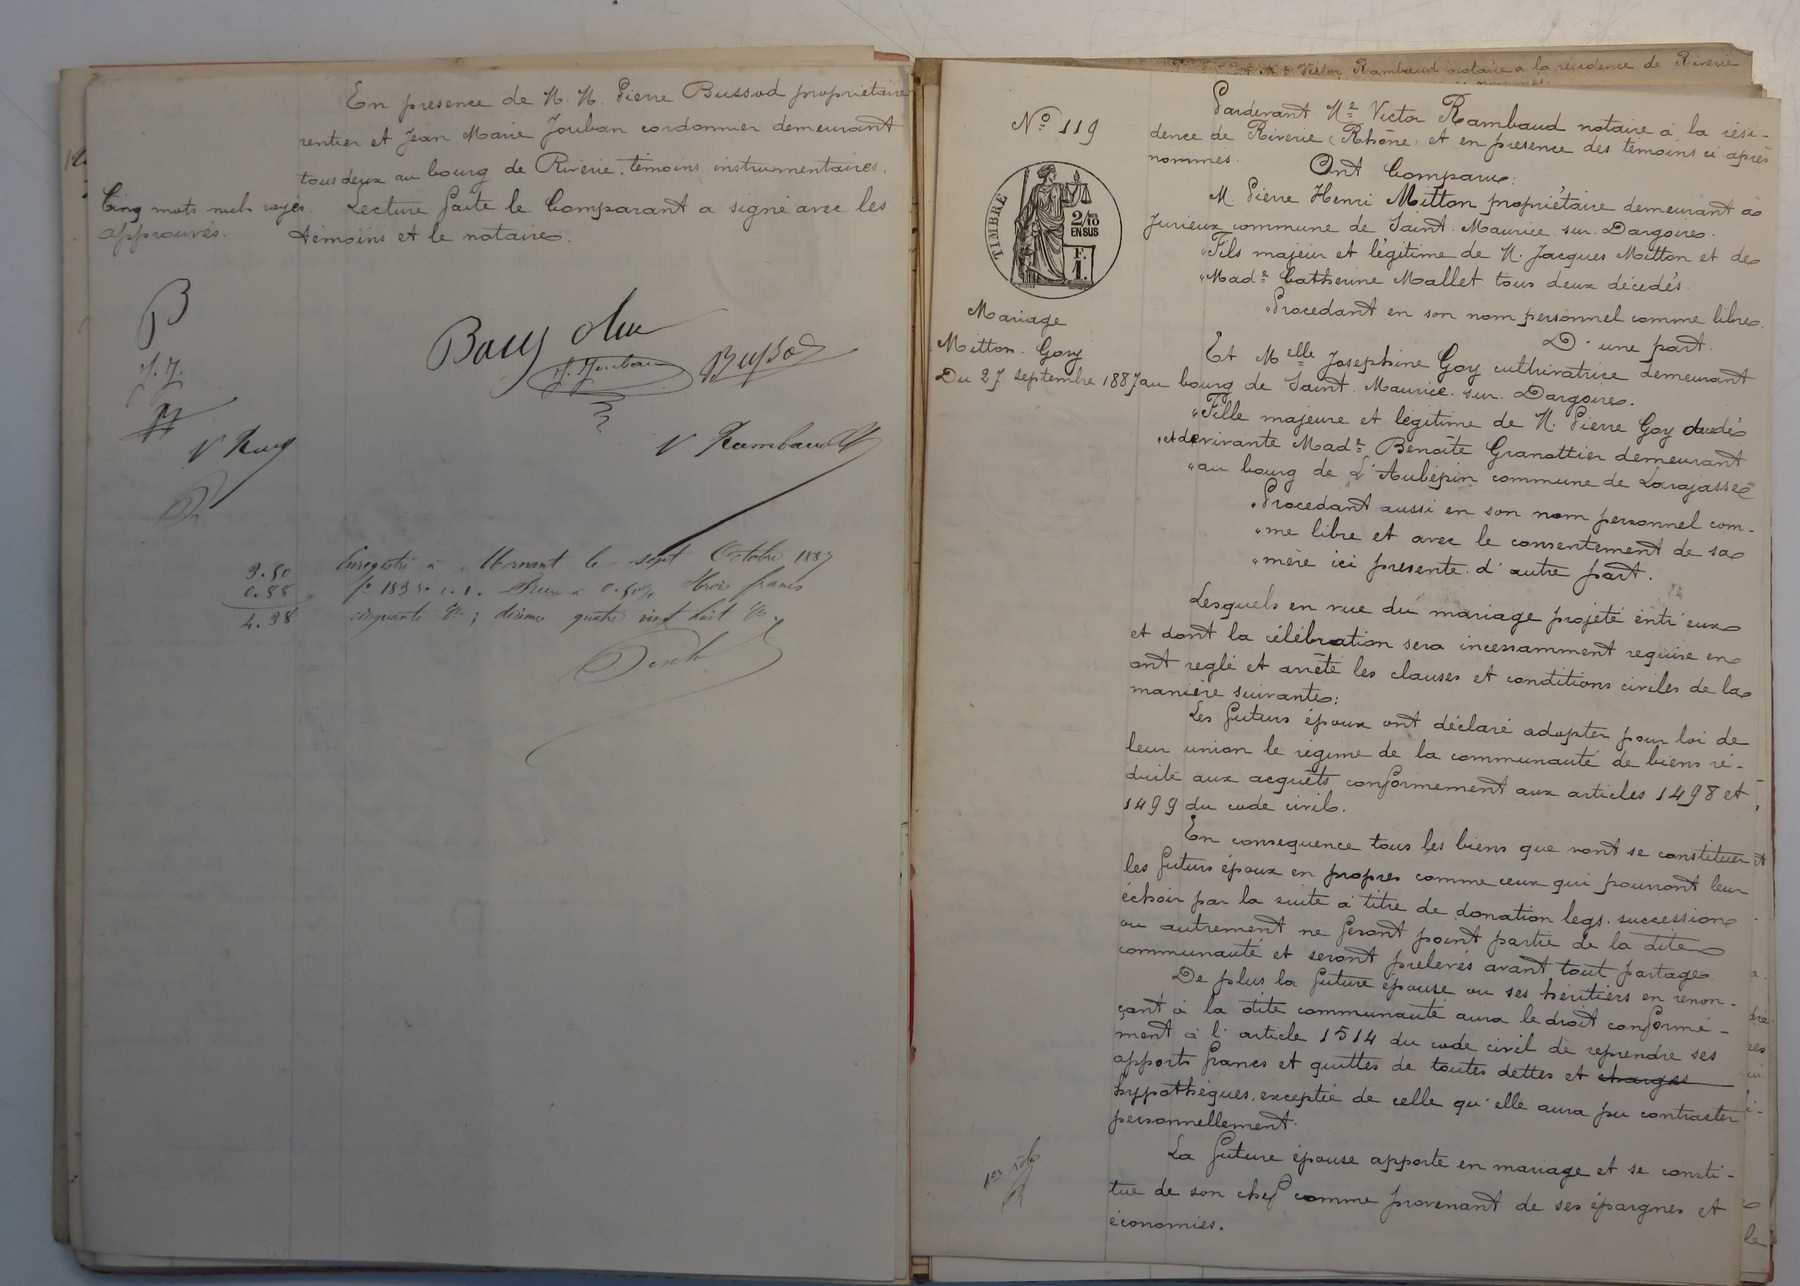 En presence de M. M. Pierre Bussod propriétaire
rentier et Jean Marie Jouban cordonnier demeurant
tous deux au bourg de Riverie. témoins instrumentaires.
Cinq mots nuls rayés
approuvés.
Lecture faite le Comparant a signé avec les
témoins et le notaire.
B
J. J.
V Ram
J. Jouban
Bussod
V Rambaud
3.50
0.88
4.38
Enregistré à Mornant le sept Octobre 1887
fo 183 ro c. 1. Reçu à 0.50% trois francs
cinquante ces; décimes quatre vingt huit ces.
Me Victor Rambaud notaire a la résidence de Riverie
No 119
TIMBRE
2/10 ES
EN SUS
F.
1.
Mariage
Mitton. Goy
Du 27 septembre 1887
Pardevant Me Victor Rambaud notaire à la rési-
dence de Riverie (Rhône) et en présence des témoins ci après
nommés.
Ont Comparu:
M Pierre Henri Mitton propriétaire demeurant à
Jurieux commune de Saint. Maurice. sur. Dargoire.
"Fils majeur et légitime de M. Jacques Mitton et de
"Made Catherine Mallet tous deux décédés.
"Procédant en son nom personnel comme libre.
D'une part.
Et Melle Josephine Goy cultivatrice demeurant
au bourg de Saint. Maurice. sur. Dargoire.
"Fille majeure et légitime de M. Pierre Goy décédé
"et de vivante Made Benoîte Granottier demeurant
"au bourg de L'Aubépin commune de Larajasse
"Procédant aussi en son nom personnel com-
"me libre et avec le consentement de sa
"mère ici présente. d'autre part.
Lesquels en vue du mariage projeté entr'eux
et dont la célébration sera incessamment requise en
ont reglé et arrêté les clauses et conditions civiles de la
manière suivante:
Les futurs époux ont déclaré adopter pour loi de
leur union le régime de la communauté de biens ré-
duite aux acquêts conformement aux articles 1498 et
1499 du code civil.
En consequence tous les biens que vont se constituer
les futurs époux en propres comme ceux qui pourront leur
échoir par la suite à titre de donation legs. succession
ou autrement ne feront point partie de la dite
communauté et seront prélevés avant tout partage.
De plus la future épouse ou ses héritiers en renon-
çant à la dite communauté aura le droit conformé-
ment à l'article 1514 du code civil de reprendre ses
apports francs et quittes de toutes dettes et charges
hypothèques. exceptié de celle qu'elle aura pu contracter
personnellement.
1er rôle
La future épouse apporte en mariage et se consti-
tue de son chef comme provenant de ses épargnes et
économies.